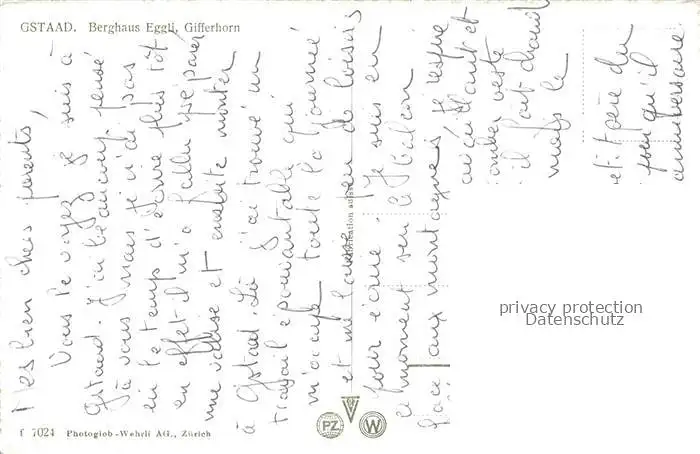 GSTAAD. Berghaus Eggli, Gifferhorn
Mes bien chers parents,
Vous le voyez je suis à
Gstaad. J'ai beaucoup pensé
à vous mais je n'ai pas
eu le temps d'écrire plus tôt
en effet il m'a fallu préparer
une valise et ensuite monter
à Gstaad. Là j'ai trouvé un
travail épouvantable qui
m'occupe toute la journée
et me laisse peu de loisirs
pour écrire. Je suis en
ce moment sur le balcon
face aux montagnes je respire
et
veste
il fait chaud
mais le
petit père du
pour qu'il
anniversaire
privacy protection
Datenschutz
7024 Photoglob-Wehrli AG., Zürich
PZ W